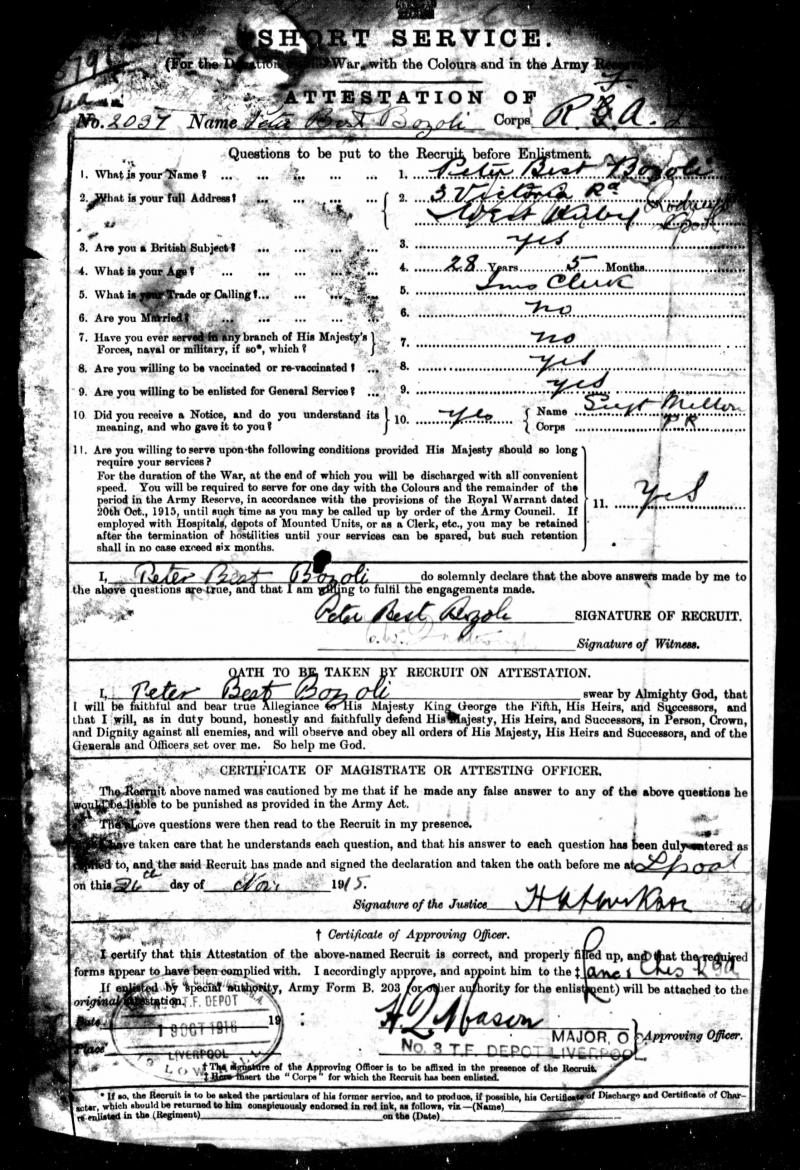 SHORT SERVICE.
(For the Duration of the War, with the Colours and in the Army Reserve
ATTESTATION OF
No. 2037 Name Peter Best Bozoli Corps R.G.A.
Questions to be put to the Recruit before Enlistment.
1. What is your Name? ... ... ... ... 1. Peter Best Bozoli
2. What is your full Address? ... ... ... { 2. 3 Victoria Rd
West Kirby
3. Are you a British Subject? ... ... ... 3. yes
4. What is your Age? ... ... ... ... 4. 28 Years 5 Months.
5. What is your Trade or Calling?... ... ... 5. Ins Clerk
6. Are you Married? ... ... ... ... 6. no
7. Have you ever served in any branch of His Majesty's
Forces, naval or military, if so*, which? } 7. no
8. Are you willing to be vaccinated or re-vaccinated? ... 8. yes
9. Are you willing to be enlisted for General Service? ... 9. yes
10. Did you receive a Notice, and do you understand its
meaning, and who gave it to you? } 10. yes { Name
Corps
11. Are you willing to serve upon the following conditions provided His Majesty should so long
require your services?
For the duration of the War, at the end of which you will be discharged with all convenient
speed. You will be required to serve for one day with the Colours and the remainder of the
period in the Army Reserve, in accordance with the provisions of the Royal Warrant dated
20th Oct., 1915, until such time as you may be called up by order of the Army Council. If
employed with Hospitals, depots of Mounted Units, or as a Clerk, etc., you may be retained
after the termination of hostilities until your services can be spared, but such retention
shall in no case exceed six months. } 11. yes
I, Peter Best Bozoli do solemnly declare that the above answers made by me to
the above questions are true, and that I am willing to fulfil the engagements made.
Peter Best Bozoli SIGNATURE OF RECRUIT.
Signature of Witness.
OATH TO BE TAKEN BY RECRUIT ON ATTESTATION.
I, Peter Best Bozoli swear by Almighty God, that
I will be faithful and bear true Allegiance to His Majesty King George the Fifth, His Heirs, and Successors, and
that I will, as in duty bound, honestly and faithfully defend His Majesty, His Heirs, and Successors, in Person, Crown,
and Dignity against all enemies, and will observe and obey all orders of His Majesty, His Heirs and Successors, and of the
Generals and Officers set over me. So help me God.
CERTIFICATE OF MAGISTRATE OR ATTESTING OFFICER.
The Recruit above named was cautioned by me that if he made any false answer to any of the above questions he
would be liable to be punished as provided in the Army Act.
The above questions were then read to the Recruit in my presence.
I have taken care that he understands each question, and that his answer to each question has been duly entered as
replied to, and the said Recruit has made and signed the declaration and taken the oath before me at Lpool
on this 26th day of Nov. 1915.
Signature of the Justice
† Certificate of Approving Officer.
I certify that this Attestation of the above-named Recruit is correct, and properly filled up, and that the required
forms appear to have been complied with. I accordingly approve, and appoint him to the ‡ Lancs & Ches RGA
If enlisted by special authority, Army Form B. 203 (or other authority for the enlistment) will be attached to the
original attestation.
T.F. DEPOT
Date 19 OCT 1916 19 H Q Mason
MAJOR, O Approving Officer.
Place LIVERPOOL No. 3 T.F. DEPOT LIVERPOOL
† The signature of the Approving Officer is to be affixed in the presence of the Recruit.
‡ Here insert the "Corps" for which the Recruit has been enlisted.
* If so, the Recruit is to be asked the particulars of his former service, and to produce, if possible, his Certificate of Discharge and Certificate of Char-
acter, which should be returned to him conspicuously endorsed in red ink, as follows, viz.—(Name)
re-enlisted in the (Regiment) on the (Date)